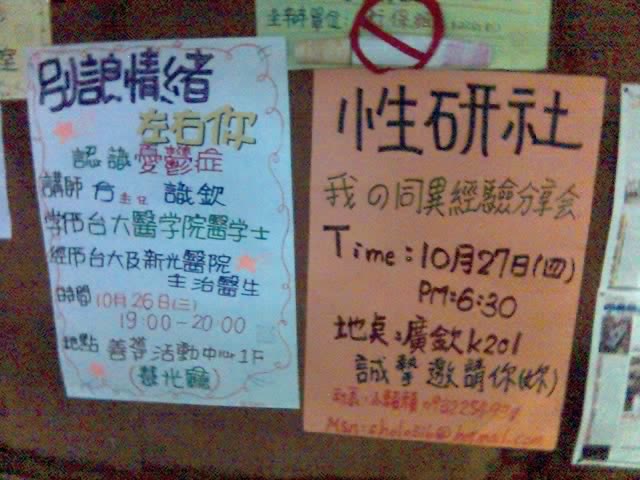 別讓情緒
左右你
認識憂鬱症
講師 方 主任 識欽
學歷台大醫学院醫学士
經歷台大及新光醫院
主治醫生
時間 10月26日(三)
19:00-20:00
地點 善導活動中心 1F
(慧光廳)
主辦單位:
性研社
我の同異經驗分享会
Time:10月27日(四)
PM:6:30
地桌:廣欽k201
誠摯邀請你(妳)